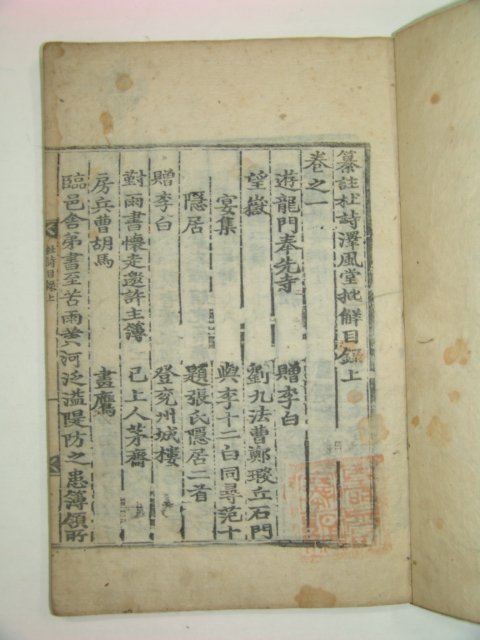 纂註杜詩澤風堂批解目錄上
卷之一
遊龍門奉先寺 贈李白
望嶽 劉九法曹鄭瑕丘石門
宴集 與李十二白同尋范十
隱居 題張氏隱居二首
贈李白 登兗州城樓
對雨書懷走邀許主簿 已上人茅齋
房兵曹胡馬 畫鷹
臨邑舍弟書至苦雨黃河泛溢隄防之患簿領所
杜詩目錄上